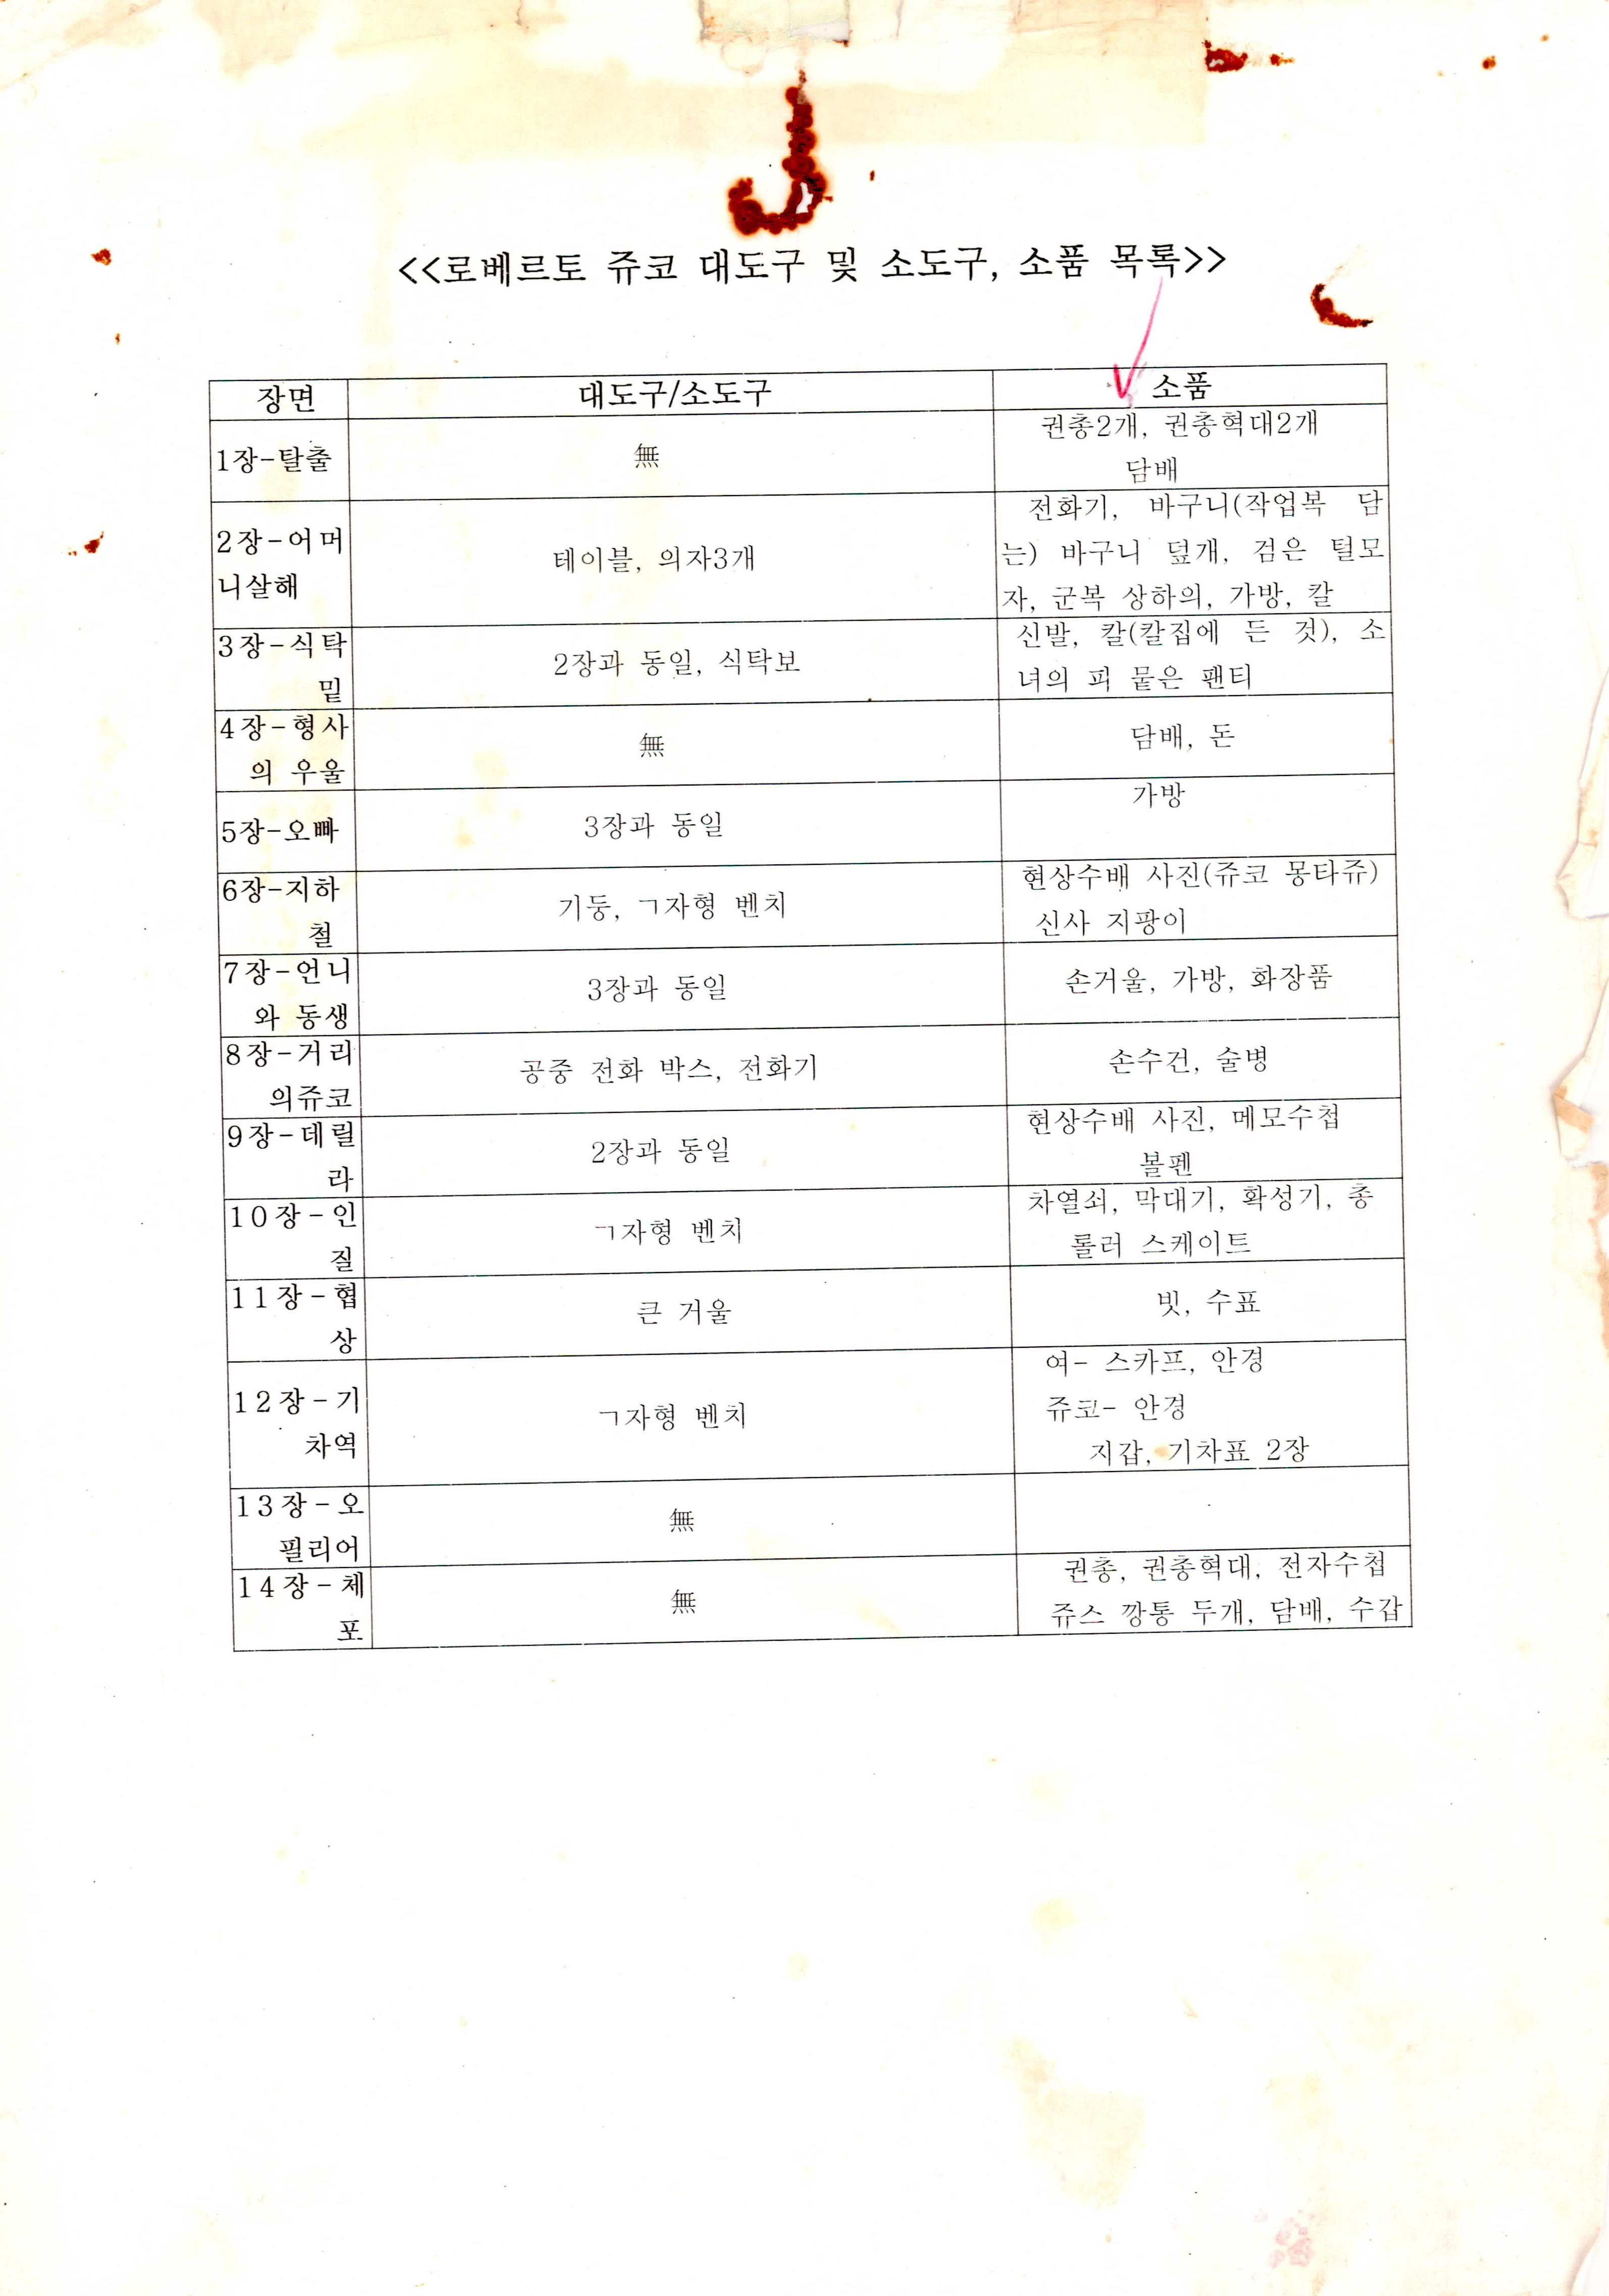 <<로베르토 쥬코 대도구 및 소도구, 소품 목록>>
장면 대도구/소도구 소품
1장-탈출 無 권총2개, 권총혁대2개
담배
2장-어머
니살해
테이블, 의자3개
전화기, 바구니(작업복 담
는) 바구니 덮개, 검은 털모
자, 군복 상하의, 가방, 칼
3장-식탁
밑
2장과 동일, 식탁보
신발, 칼(칼집에 든 것), 소
녀의 피 뭍은 팬티
4장-형사
의 우울
無
담배, 돈
5장-오빠
3장과 동일
가방
6장-지하
철
기둥, ㄱ자형 벤치
현상수배 사진(쥬코 몽타쥬)
신사 지팡이
7장-언니
와 동생
3장과 동일
손거울, 가방, 화장품
8장-거리
의쥬코
공중 전화 박스, 전화기
손수건, 술병
9장-데릴
라
2장과 동일
현상수배 사진, 메모수첩
볼펜
10장-인
질
ㄱ자형 벤치
차열쇠, 막대기, 확성기, 총
롤러 스케이트
11장-협
상
큰 거울
빗, 수표
12장-기
차역
ㄱ자형 벤치
여- 스카프, 안경
쥬코- 안경
지갑, 기차표 2장
13장-오
필리어
無
14장-체
포
無
권총, 권총혁대, 전자수첩
쥬스 깡통 두개, 담배, 수갑